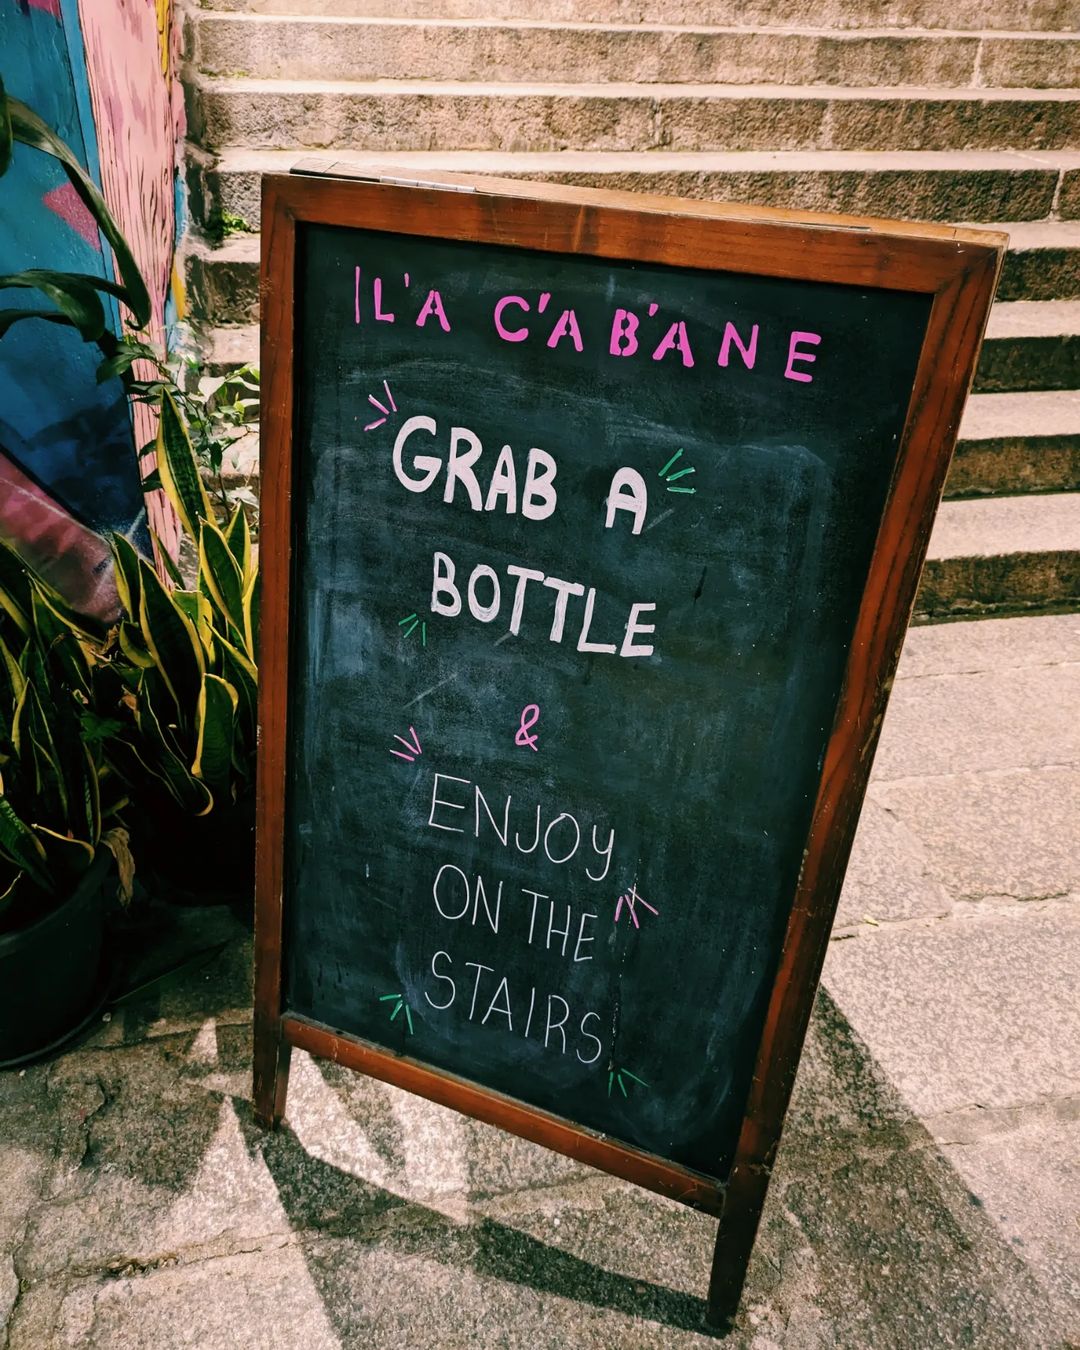 L'A C'AB'ANE
GRAB A
BOTTLE
&
ENJOY
ON THE
STAIRS